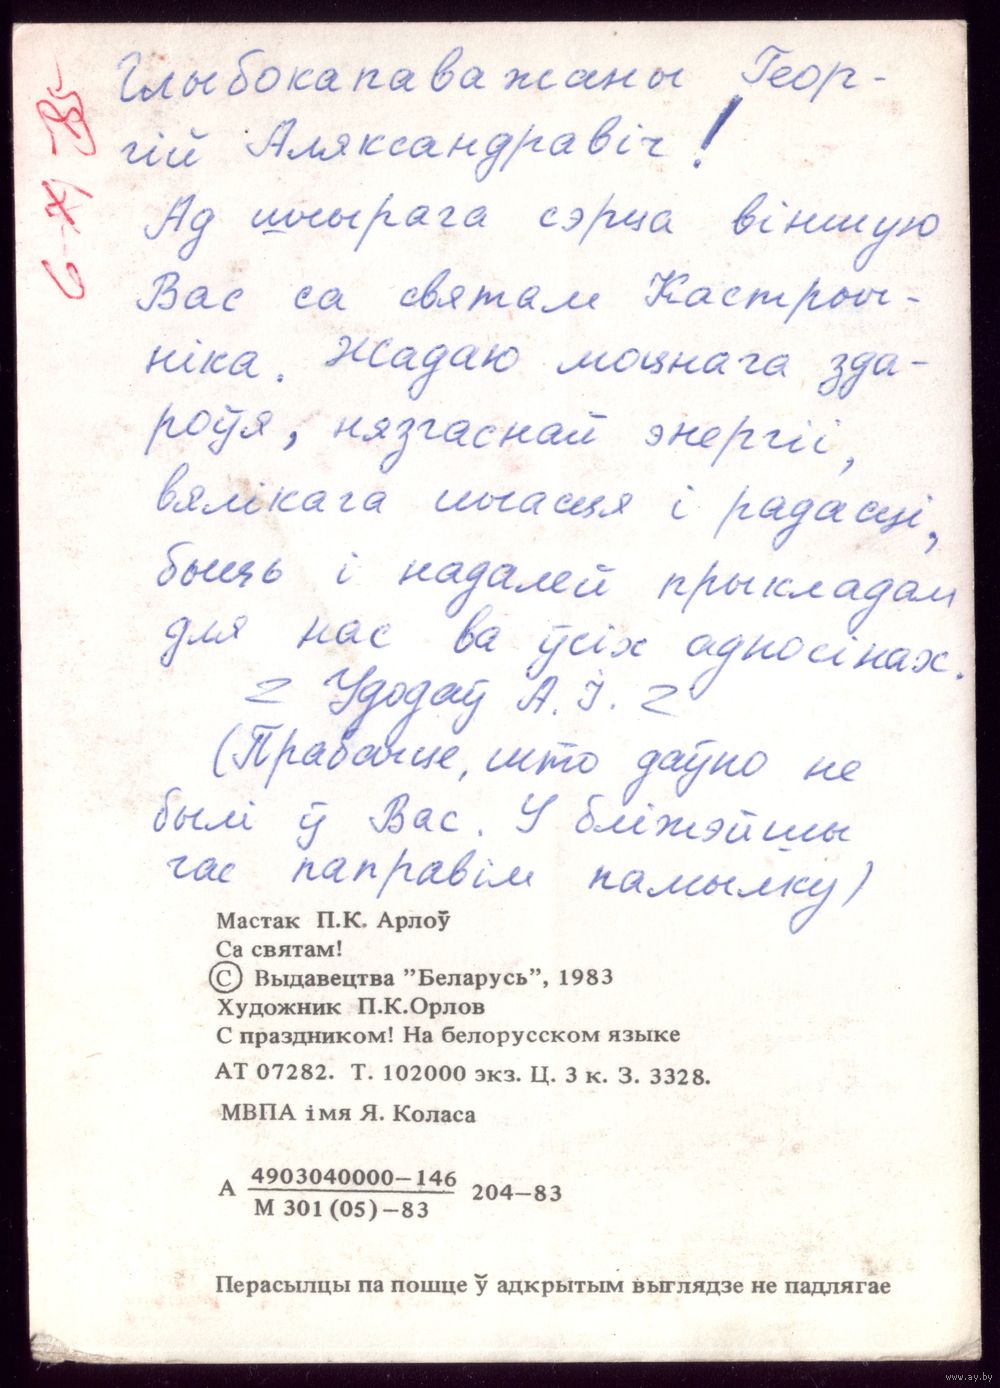 Глыбокапаважаны Геор-
гій Аляксандравіч!
Ад шчырага сэрца віншую
Вас са святам Кастрыч-
ніка. Жадаю моцнага зда-
роўя, нязгаснай энергіі,
вялікага шчасця і радасці,
быць і надалей прыкладам
для нас ва ўсіх адносінах.
Удодаў А.І.
(Прабачце, што даўно не
былі ў Вас. У бліжэйшы
час паправім памылку)
Мастак П.К. Арлоў
Са святам!
© Выдавецтва "Беларусь", 1983
Художник П.К.Орлов
С праздником! На белорусском языке
АТ 07282. Т. 102000 экз. Ц. 3 к. З. 3328.
МВПА імя Я. Коласа
А 4903040000—146 204—83
М 301(05)—83
Перасылцы па пошце ў адкрытым выглядзе не падлягае
www.ay.by